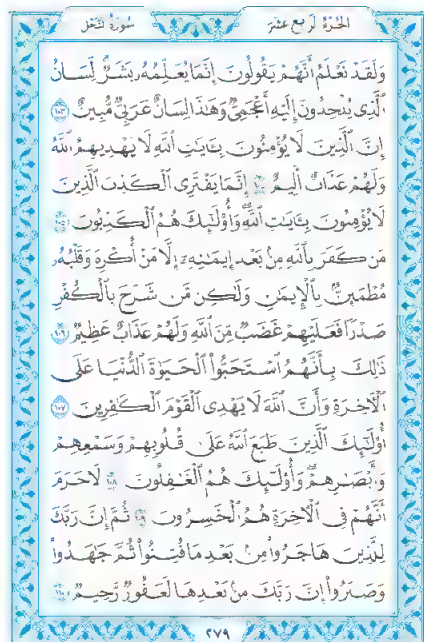 الجزء الرابع عشر
سورة النحل
وَلَقَدْ نَعْلَمُ أَنَّهُمْ يَقُولُونَ إِنَّمَا يُعَلِّمُهُۥ بَشَرٌ ۗ لِّسَانُ
ٱلَّذِى يُلْحِدُونَ إِلَيْهِ أَعْجَمِىٌّ وَهَٰذَا لِسَانٌ عَرَبِىٌّ مُّبِينٌ ١٠٣
إِنَّ ٱلَّذِينَ لَا يُؤْمِنُونَ بِـَٔايَٰتِ ٱللَّهِ لَا يَهْدِيهِمُ ٱللَّهُ
وَلَهُمْ عَذَابٌ أَلِيمٌ ١٠٤ إِنَّمَا يَفْتَرِى ٱلْكَذِبَ ٱلَّذِينَ
لَا يُؤْمِنُونَ بِـَٔايَٰتِ ٱللَّهِ ۖ وَأُو۟لَٰٓئِكَ هُمُ ٱلْكَٰذِبُونَ ١٠٥
مَن كَفَرَ بِٱللَّهِ مِنۢ بَعْدِ إِيمَٰنِهِۦٓ إِلَّا مَنْ أُكْرِهَ وَقَلْبُهُۥ
مُطْمَئِنٌّۢ بِٱلْإِيمَٰنِ وَلَٰكِن مَّن شَرَحَ بِٱلْكُفْرِ
صَدْرًا فَعَلَيْهِمْ غَضَبٌ مِّنَ ٱللَّهِ وَلَهُمْ عَذَابٌ عَظِيمٌ ١٠٦
ذَٰلِكَ بِأَنَّهُمُ ٱسْتَحَبُّوا۟ ٱلْحَيَوٰةَ ٱلدُّنْيَا عَلَى
ٱلْءَاخِرَةِ وَأَنَّ ٱللَّهَ لَا يَهْدِى ٱلْقَوْمَ ٱلْكَٰفِرِينَ ١٠٧
أُو۟لَٰٓئِكَ ٱلَّذِينَ طَبَعَ ٱللَّهُ عَلَىٰ قُلُوبِهِمْ وَسَمْعِهِمْ
وَأَبْصَٰرِهِمْ ۖ وَأُو۟لَٰٓئِكَ هُمُ ٱلْغَٰفِلُونَ ١٠٨ لَا جَرَمَ
أَنَّهُمْ فِى ٱلْءَاخِرَةِ هُمُ ٱلْخَٰسِرُونَ ١٠٩ ثُمَّ إِنَّ رَبَّكَ
لِلَّذِينَ هَاجَرُوا۟ مِنۢ بَعْدِ مَا فُتِنُوا۟ ثُمَّ جَٰهَدُوا۟
وَصَبَرُوٓا۟ إِنَّ رَبَّكَ مِنۢ بَعْدِهَا لَغَفُورٌ رَّحِيمٌ ١١٠
٢٧٩